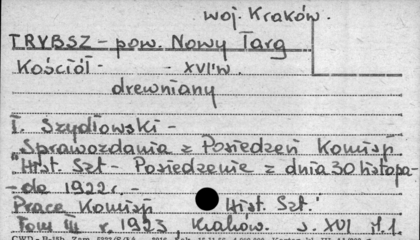 woj. Kraków.
TRYBSZ - pow. Nowy Targ
Kościół - - XVI w.
drewniany
T. Szydłowski -
Sprawozdania z Posiedzeń Komisji
"Hist. Szt - Posiedzenie z dnia 30 listopa-
- da 1922 r. -
Prace Komisji Hist. Szt."
Tom III r. 1923, Kraków. s. XVI